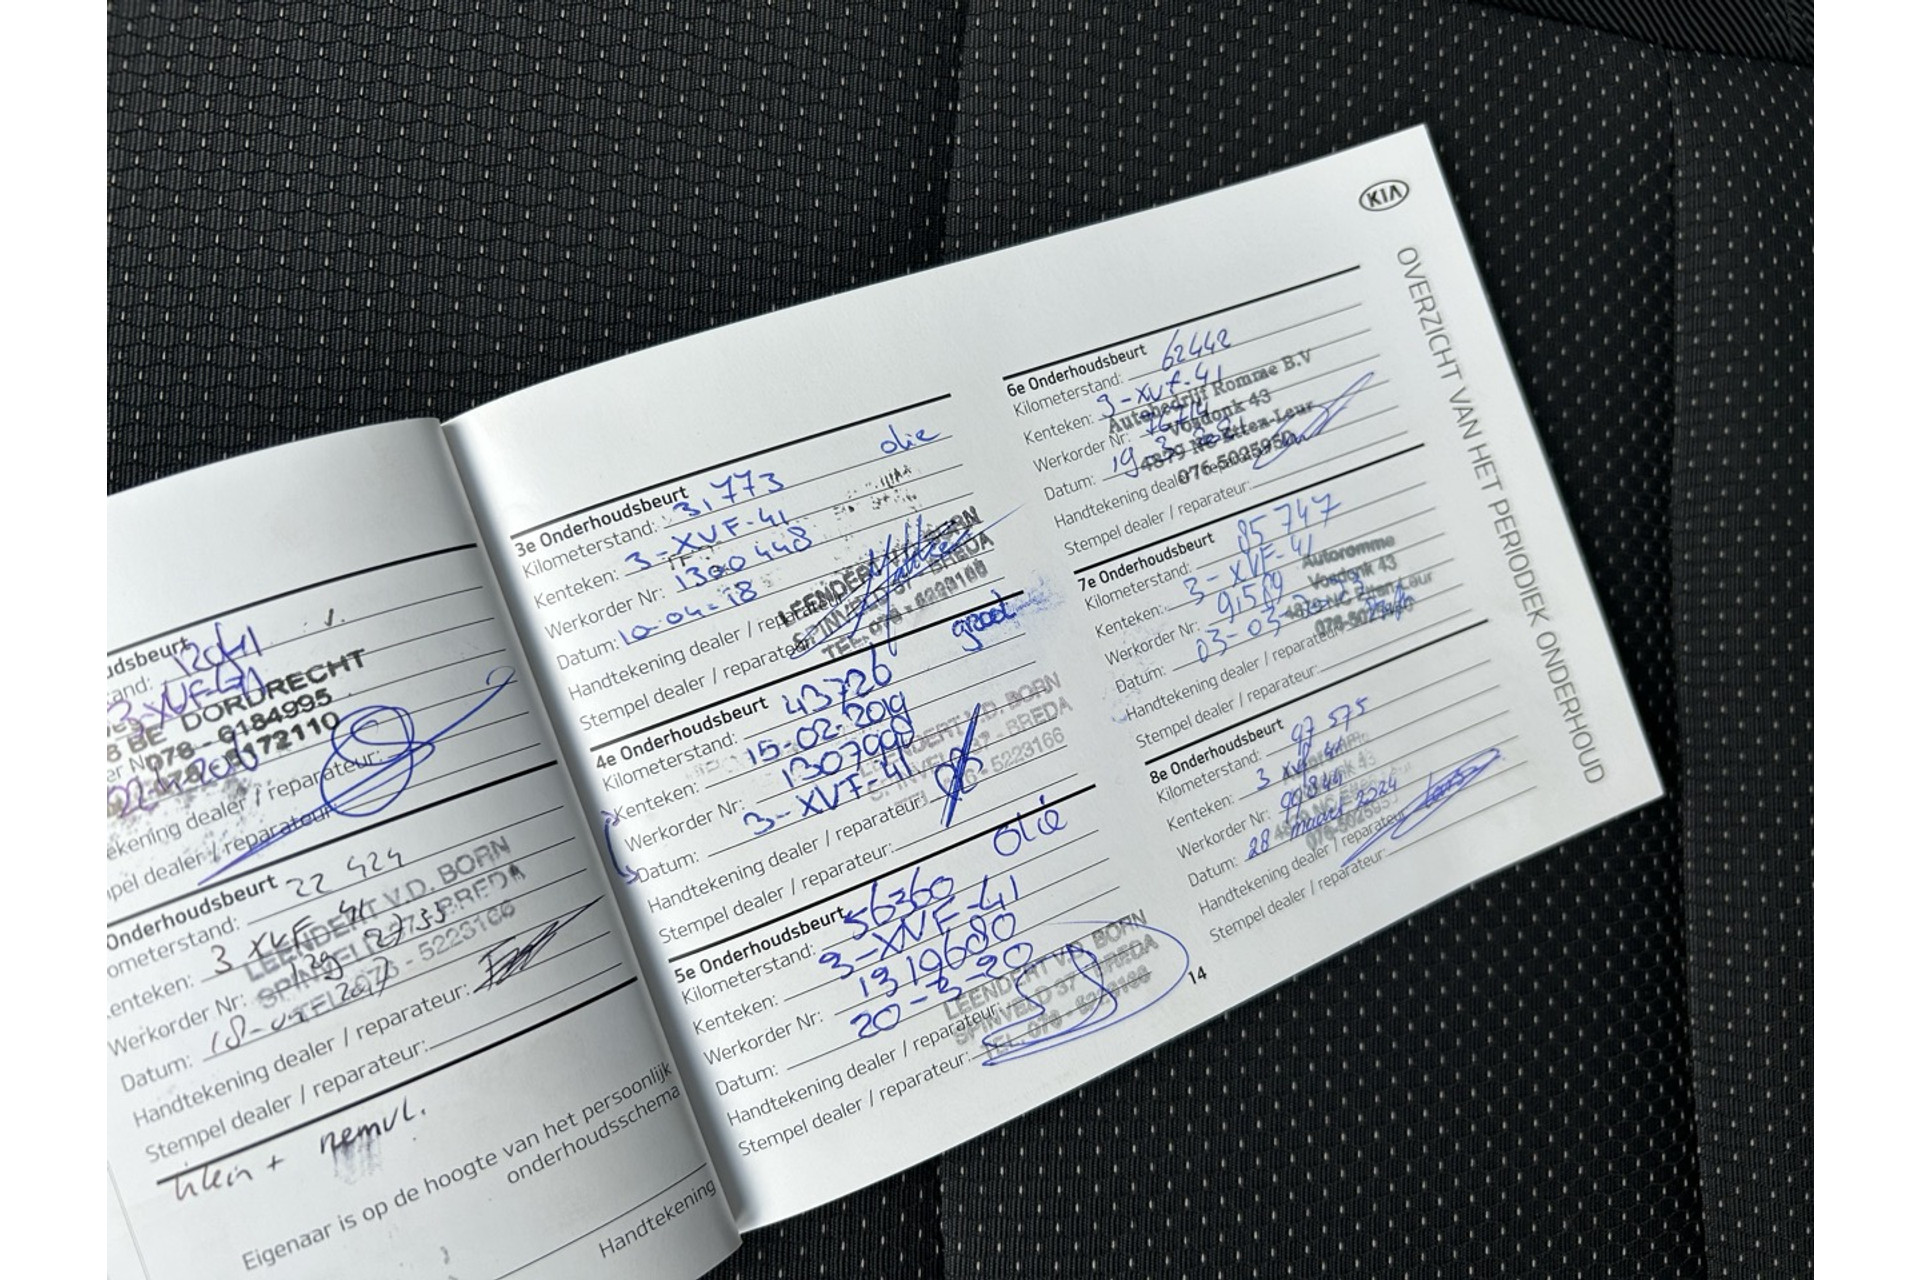 KIA
OVERZICHT VAN HET PERIODIEK ONDERHOUD
DORDRECHT
078 - 6184995
reparateur:
reparateur
Onderhoudsbeurt 22 424
LEENDERT V.D. BORN
3 XVF 41
BREDA
Werkorder Nr:
5223166
Datum:
2017
Handtekening dealer / reparateur:
Stempel dealer / reparateur:
klein + remvl.
Eigenaar is op de hoogte van het persoonlijk
onderhoudsschema
Handtekening
olie
3e Onderhoudsbeurt
Kilometerstand: 31773
Kenteken: 3-XVF-41
Werkorder Nr: 1300448
Datum: 10-04-18
Handtekening dealer / reparateur:
Stempel dealer / reparateur:
LEENDERT V.D. BORN
SPINVELD 37 - BREDA
TEL. 076 - 5223166
groot
4e Onderhoudsbeurt
Kilometerstand: 43726
Kenteken: 15-02-209
Werkorder Nr: 1307998
Datum: 3-XVF-41
Handtekening dealer / reparateur:
Stempel dealer / reparateur:
LEENDERT V.D. BORN
SPINVELD 37 - BREDA
TEL. 076 - 5223166
olie
5e Onderhoudsbeurt
Kilometerstand: 56360
Kenteken: 3-XVF-41
Werkorder Nr: 1319680
Datum: 20-3-20
Handtekening dealer / reparateur:
Stempel dealer / reparateur:
LEENDERT V.D. BORN
SPINVELD 37 BREDA
TEL. 076 - 5223166
6e Onderhoudsbeurt
Kilometerstand: 62442
Kenteken: 3-XVF-41
Werkorder Nr:
Datum:
Handtekening dealer
Stempel dealer / reparateur:
Autobedrijf Romme B.V
Vosdonk 43
4879 NC Etten-Leur
076-5025950
7e Onderhoudsbeurt
Kilometerstand: 85747
Kenteken: 3-XVF-41
Werkorder Nr: 91589
Datum: 03-03-
Handtekening dealer / reparateur:
Stempel dealer / reparateur:
Autoromme
Vosdonk 43
4879 NC Etten Leur
8e Onderhoudsbeurt
Kilometerstand: 97 575
Kenteken: 3 XVF 41
Werkorder Nr: 99844
Datum: 28 maart 2024
Handtekening dealer / reparateur
Stempel dealer / reparateur:
14